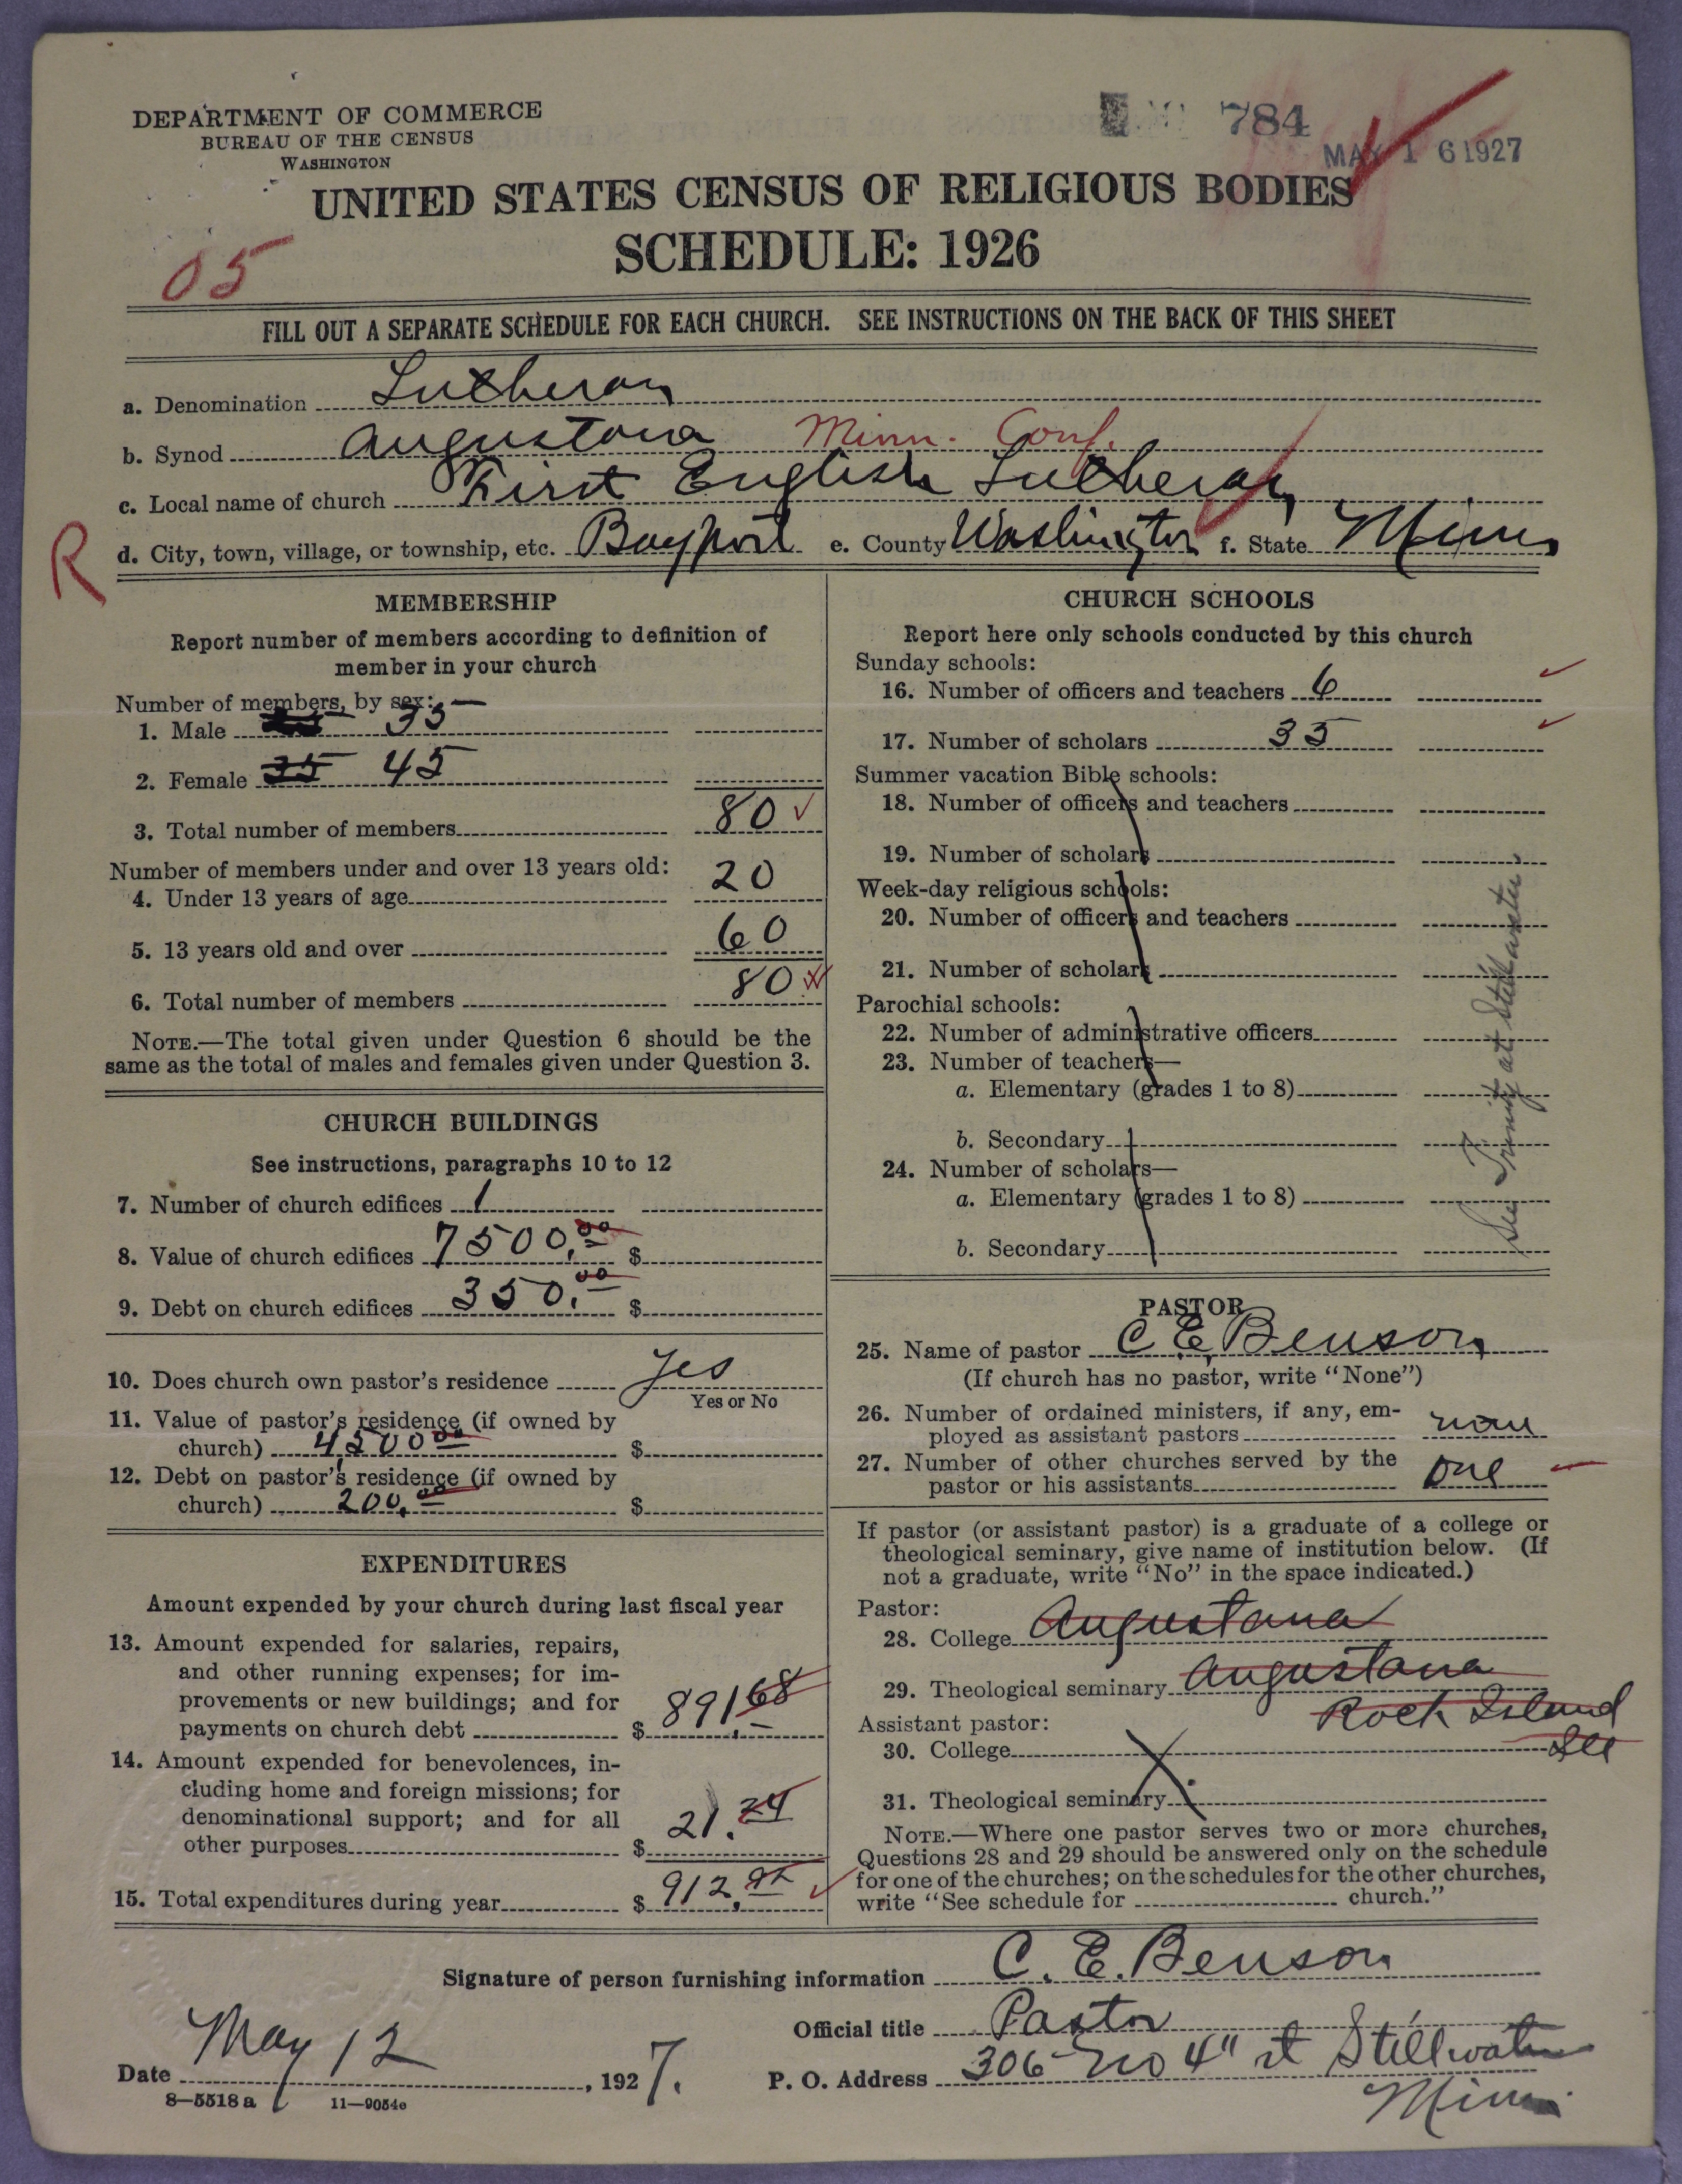 DEPARTMENT OF COMMERCE
BUREAU OF THE CENSUS
WASHINGTON
784
MAY 16 1927
UNITED STATES CENSUS OF RELIGIOUS BODIES
SCHEDULE: 1926
05
FILL OUT A SEPARATE SCHEDULE FOR EACH CHURCH. SEE INSTRUCTIONS ON THE BACK OF THIS SHEET
a. Denomination Lutheran
b. Synod Augustana Minn. Conf.
c. Local name of church First English Lutheran
R
d. City, town, village, or township, etc. Bayport e. County Washington f. State Minn
MEMBERSHIP
Report number of members according to definition of
member in your church
Number of members, by sex:
1. Male 35
2. Female 35 45
3. Total number of members 80
Number of members under and over 13 years old:
4. Under 13 years of age 20
5. 13 years old and over 60
6. Total number of members 80
NOTE.—The total given under Question 6 should be the
same as the total of males and females given under Question 3.
CHURCH BUILDINGS
See instructions, paragraphs 10 to 12
7. Number of church edifices 1
8. Value of church edifices 7500.00 $
9. Debt on church edifices 350.00 $
10. Does church own pastor's residence Yes
Yes or No
11. Value of pastor's residence (if owned by
church) 4500 00 $
12. Debt on pastor's residence (if owned by
church) 200.00 $
EXPENDITURES
Amount expended by your church during last fiscal year
13. Amount expended for salaries, repairs,
and other running expenses; for im-
provements or new buildings; and for
payments on church debt $ 891.68
14. Amount expended for benevolences, in-
cluding home and foreign missions; for
denominational support; and for all
other purposes $ 21.24
15. Total expenditures during year $ 912.92
CHURCH SCHOOLS
Report here only schools conducted by this church
Sunday schools:
16. Number of officers and teachers 6
17. Number of scholars 35
Summer vacation Bible schools:
18. Number of officers and teachers
19. Number of scholars
Week-day religious schools:
20. Number of officers and teachers
21. Number of scholars
Parochial schools:
22. Number of administrative officers
23. Number of teachers—
a. Elementary (grades 1 to 8)
b. Secondary
24. Number of scholars—
a. Elementary (grades 1 to 8)
b. Secondary
See Trinity at Stillwater
PASTOR
25. Name of pastor C. E. Benson
(If church has no pastor, write "None")
26. Number of ordained ministers, if any, em-
ployed as assistant pastors none
27. Number of other churches served by the
pastor or his assistants one
If pastor (or assistant pastor) is a graduate of a college or
theological seminary, give name of institution below. (If
not a graduate, write "No" in the space indicated.)
Pastor:
28. College Augustana
29. Theological seminary Augustana
Rock Island
Ill
Assistant pastor:
30. College
31. Theological seminary
NOTE.—Where one pastor serves two or more churches,
Questions 28 and 29 should be answered only on the schedule
for one of the churches; on the schedules for the other churches,
write "See schedule for church."
Signature of person furnishing information C. E. Benson
Official title Pastor
Date May 12, 1927.
P. O. Address 306 No 4" st Stillwater
Minn
8—5518 a 11—9054e